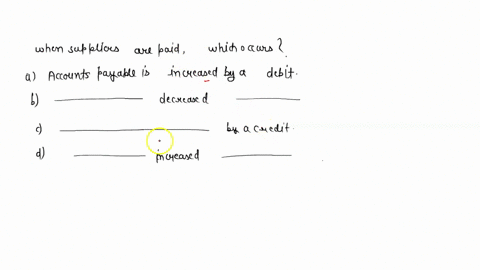 when suppliers are paid, which occurs?
a) Accounts payable is increased by a debit.
b) ———— decreased ————
c) ———————— by a credit.
d) ———— increased ————